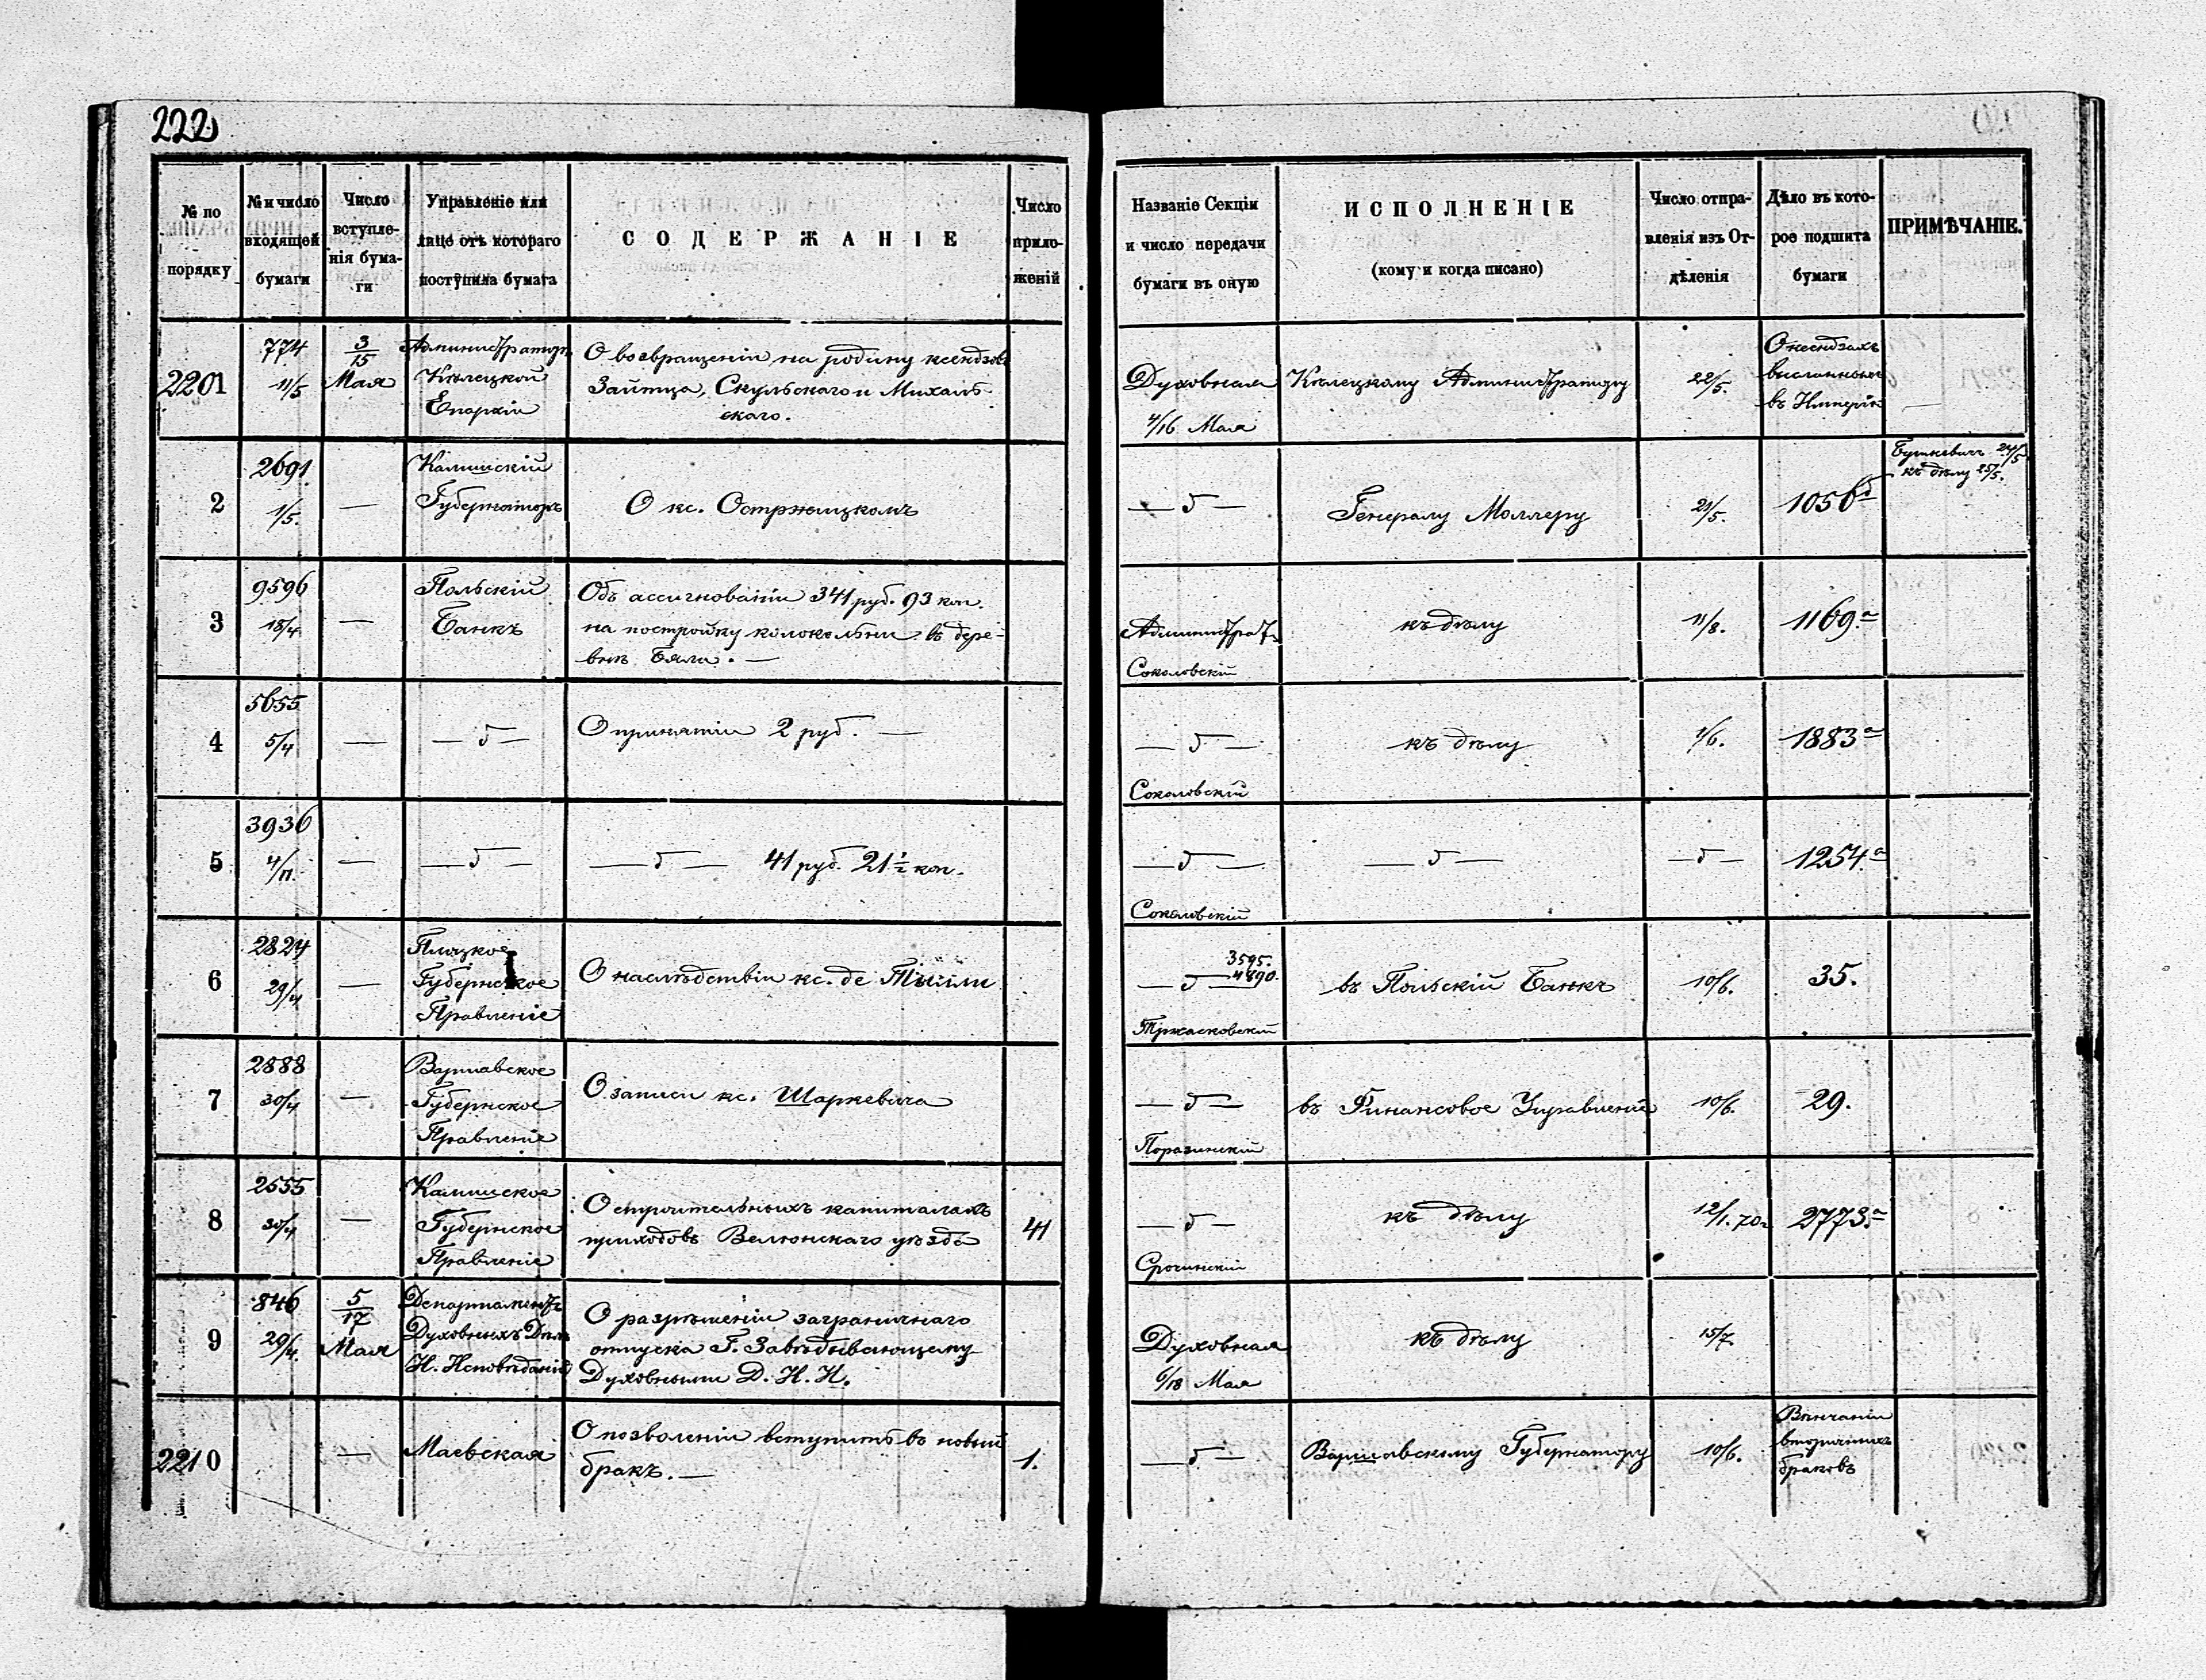 222
№ по порядку
№ и число входящей бумаги
Число вступле-
нія бума-
ги
Управленіе или
лице отъ котораго
поступила бумага
СОДЕРЖАНІЕ
Число
прило-
женій
Названіе Секціи
и число передачи
бумаги въ оную
ИСПОЛНЕНІЕ
(кому и когда писано)
Число отпра-
вленія изъ От-
дѣленія
Дѣло въ кото-
рое подшита
бумаги
ПРИМѢЧАНІЕ.
2201
774
11/5
3/15
Мая
Администраторъ
Кѣлецкой
Епархіи
О возвращеніи на родину ксендзовъ
Зайтца, Скульскаго и Михаль-
скаго.
Духовная
4/16 Мая
Кѣлецкому Администратору
22/5.
О ксендзахъ
высланныхъ
въ Имперію
—
2
2691
1/5.
—
Калишскій
Губернаторъ
О кс. Остржицкомъ
— б —
Генералу Моллеру
21/5.
1056
къ дѣлу 25/5.
3
9596
18/4
—
Польскій
Банкъ
Объ ассигнованіи 341 руб. 93 коп.
на постройку колокольни въ дере-
внѣ Бяли. —
Администрат.
Соколовскій
къ дѣлу
11/8.
1169.а
4
5655
5/4
—
— б —
О принятіи 2 руб. —
— б —
Соколовскій
къ дѣлу
1/6.
1883а
5
3936
4/П.
—
— б —
— б — 41 руб. 21 1/2 коп.
— б —
Соколовскій
— б —
— б —
1254.а
6
2824
29/4
—
Плоцкое
Губернское
Правленіе
О наслѣдствіи кс. де Тылли
3595.
— б — 4890.
Тржасковскій
въ Польскій Банкъ
10/6.
35.
7
2888
30/4
—
Варшавское
Губернское
Правленіе
О записи кс. Шаркевича
— б —
Поразинскій
въ Финансовое Управленіе
10/6.
29.
8
2555
30/4
—
Калишское
Губернское
Правленіе
О строительныхъ капиталахъ
приходовъ Велюнскаго уѣзда
41
— б —
Срочинскій
къ дѣлу
12/1. 70.
2773.а
9
846
29/4.
5/17
Мая
Департаментъ
Духовныхъ Дѣлъ
И. Исповѣданій
О разрѣшеніи заграничнаго
отпуска Г. Завѣдывающему
Духовными Д. И. И.
Духовная
6/18 Мая
къ дѣлу
15/7
2210
—
Маевская
О позволеніи вступить въ новый
бракъ. —
1.
— б —
Варшавскому Губернатору
10/6.
Вѣнчаніи
вторичныхъ
браковъ